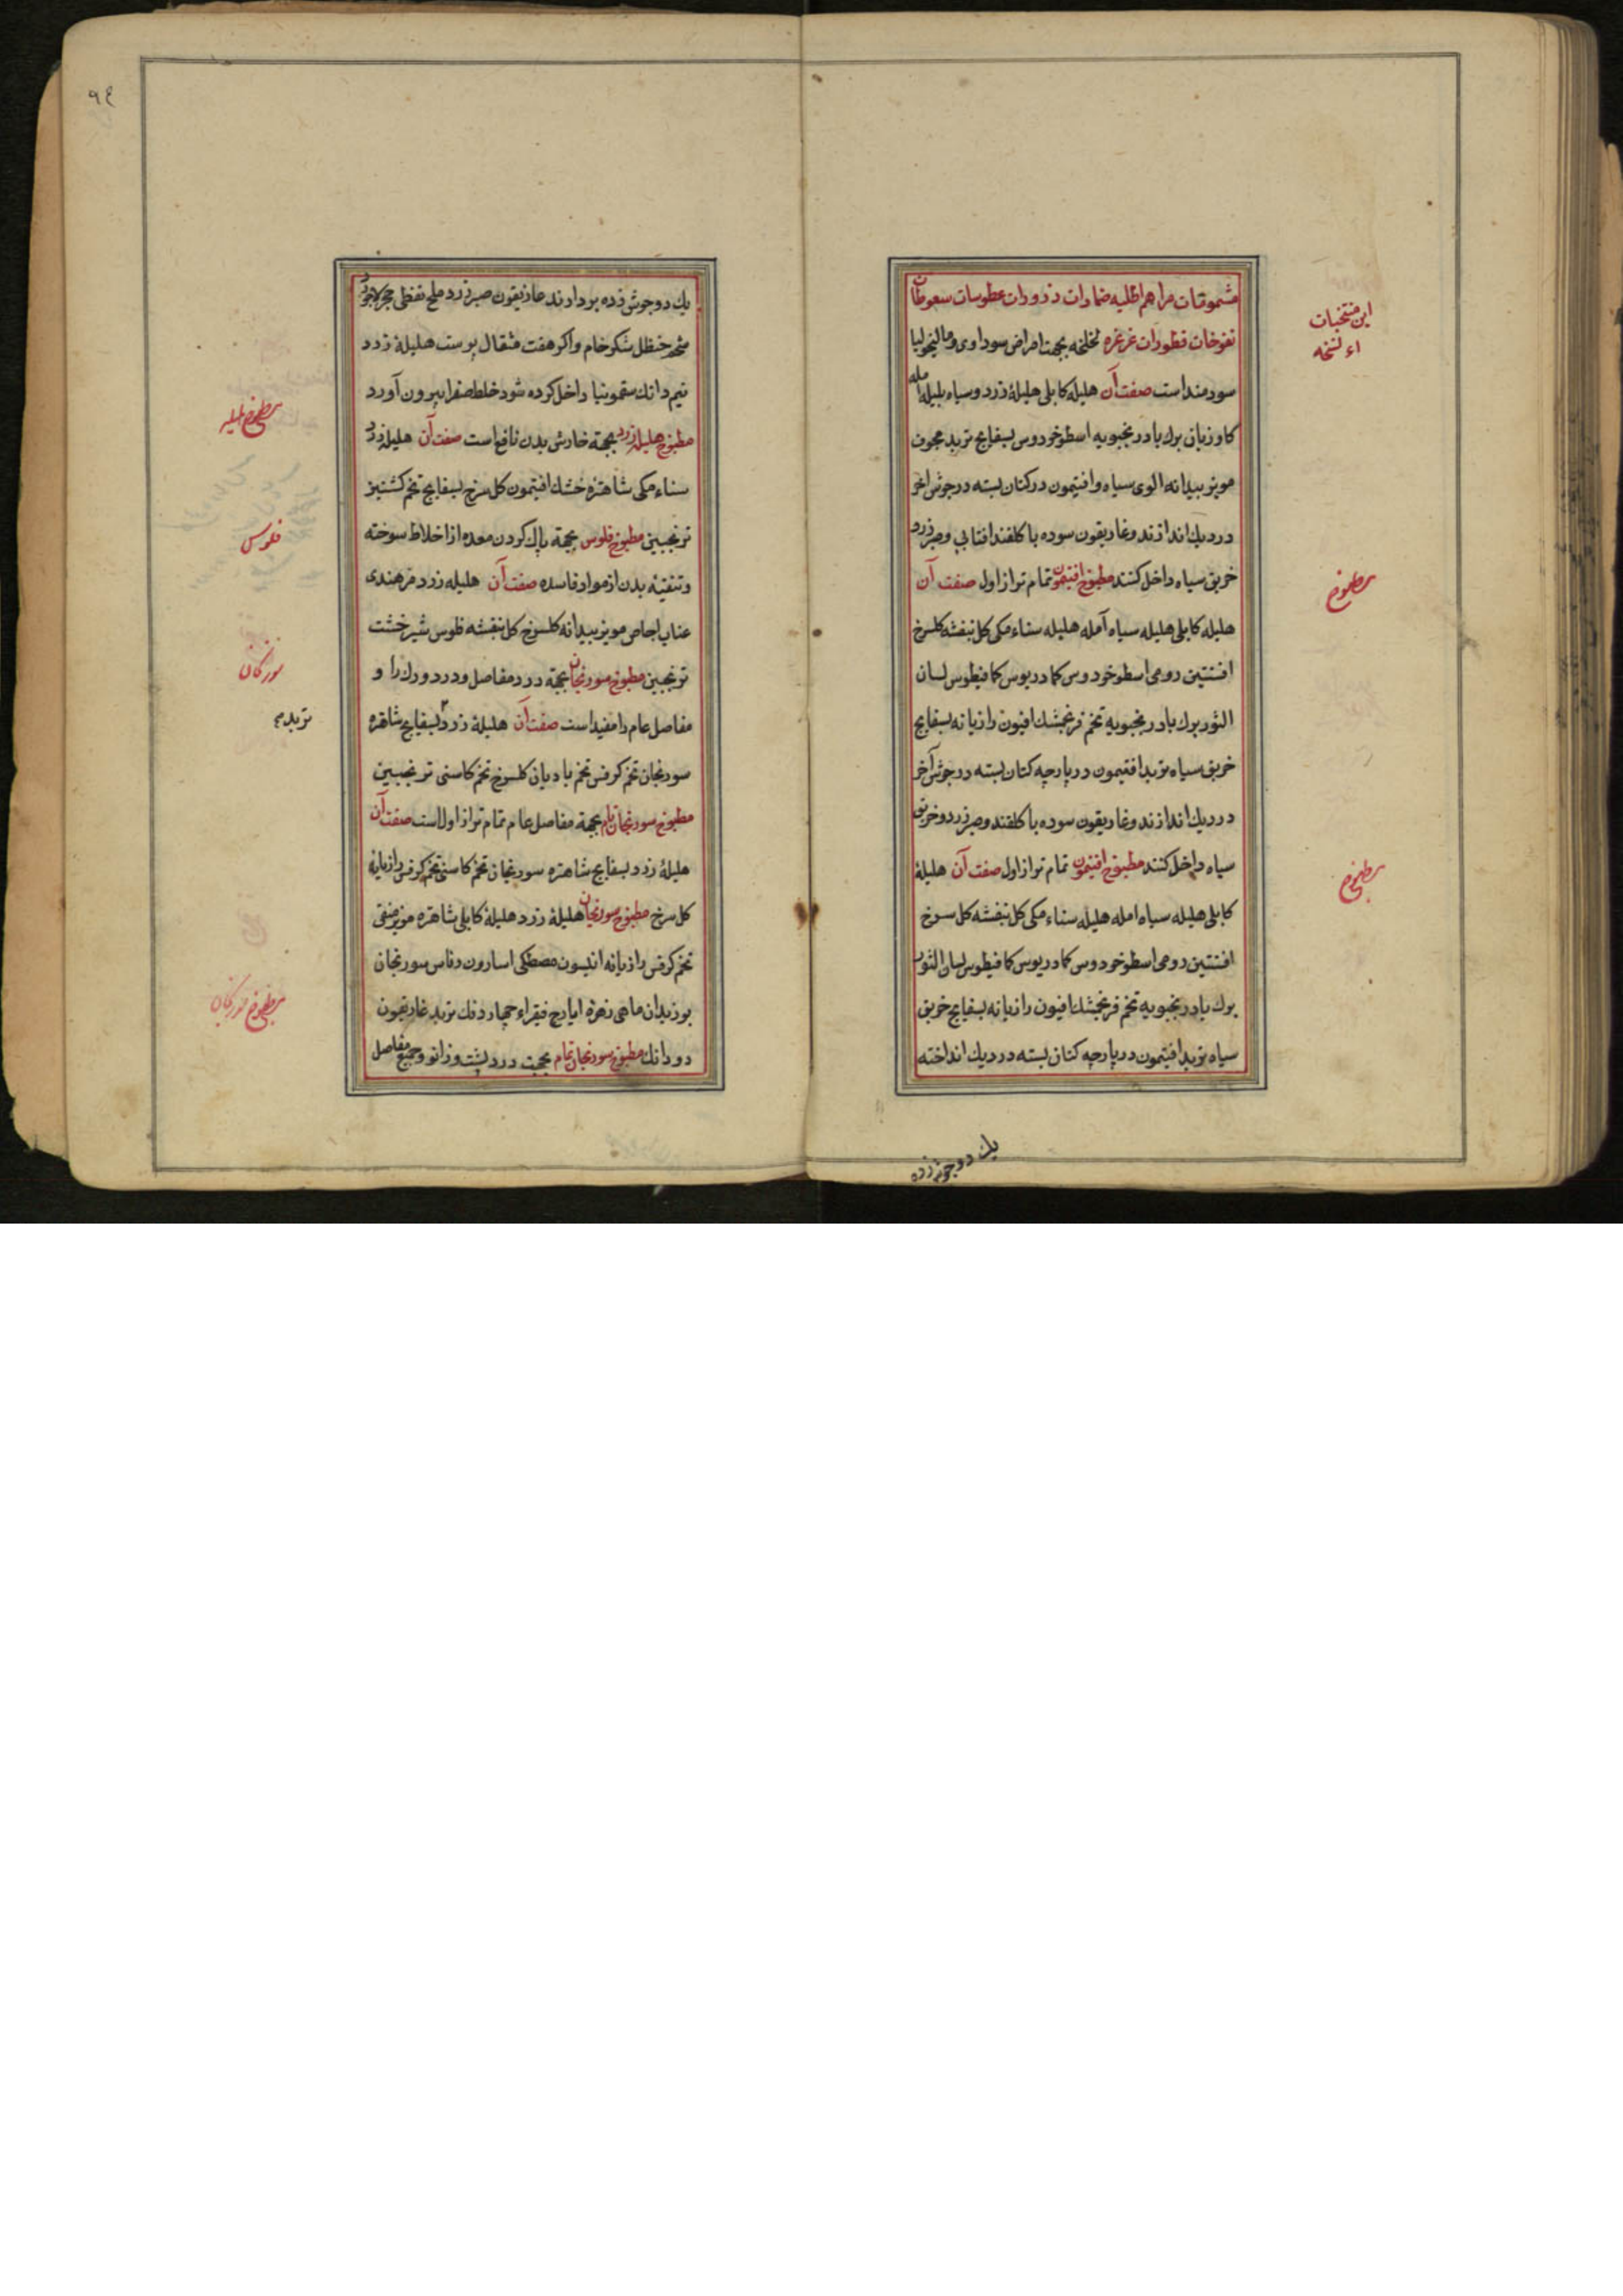 مشمومات مراهم اطلیه ضمادات ذرورات عطوسات سعوطات
نفوخات قطورات غرغره لخلخه بجهت امراض سوداوی و مالیخولیا
سودمند است صفت آن هلیله کابلی هلیلۀ زرد و سیاه بلیله امله
کاوزبان برك بادرنجبویه اسطوخودوس بسفایج تربد مجوف
مویز بیدانه الوی سیاه و افتیمون در کتان بسته در جوش اخر
در دیك اندازند و غاریقون سوده با کلقند افتابی و صبر زرد
خربق سیاه داخل کنند مطبوخ افتیمون تمام تر از اول صفت آن
هلیله کابلی هلیله سیاه آمله هلیله سناء مکی کل بنفشه کلسرخ
افسنتین رومی اسطوخودوس کمادریوس کمافیطوس لسان
الثور برك بادرنجبویه تخم فرنجمشك افیون رازیانه بسفایج
خربق سیاه تربد افتیمون در پارچه کتان بسته در جوش آخر
در دیك اندازند و غاریقون سوده با کلقند و صبر زرد و خربق
سیاه داخل کنند مطبوخ افتیمون تمام تر از اول صفت آن هلیلۀ
کابلی هلیله سیاه امله هلیله سناء مکی کل بنفشه کل سرخ
افسنتین رومی اسطوخودوس کمادریوس کمافیطوس لسان الثور
برك بادرنجبویه تخم فرنجمشك افیون رازیانه بسفایج خربق
سیاه تربد افتیمون در پارچه کتان بسته در دیك انداخته
یك دو جوش زده
این منتخبات
مطبوخ
مطبوخ
٩٤
یك دو جوش زده بردارند غاریقون صبر زرد ملح نفطی حجر لاجورد
شحم حنظل شکر خام و اکر هفت مثقال پوست هلیلۀ زرد
نیم دانك سقمونیا داخل کرده شود خلط صفرا بیرون آورد
مطبوخ هلیله زرد بجهة خارش بدن نافع است صفت آن هلیله زرد
سناء مکی شاهتره خشك افتیمون کل سرخ بسفایج تخم کشنیز
ترنجبین مطبوخ فلوس بجهة پاك کردن معده از اخلاط سوخته
و تنقیۀ بدن از مواد فاسده صفت آن هلیله زرد تمرهندی
عناب اجاص مویز بیدانه کلسرخ کل بنفشه فلوس شیرخشت
ترنجبین مطبوخ سورنجان بجهة درد مفاصل و درد ورك را و
مفاصل عام را مفید است صفت آن هلیلۀ زرد بسفایج شاهتره
سورنجان تخم کرفس تخم بادیان کلسرخ تخم کاسنی ترنجبین
مطبوخ سورنجان تام بجهة مفاصل عام تمام تر از اول است صفت آن
هلیلۀ زرد بسفایج شاهتره سورنجان تخم کاسنی تخم کرفس رازیانه
کل سرخ مطبوخ سورنجان هلیلۀ زرد هلیلۀ کابلی شاهتره مویز منقی
تخم کرفس رازیانه انیسون مصطکی اسارون روناس سورنجان
بوزیدان ماهی زهره ایارج فیقراء تربد غاریقون
دو دانك مطبوخ سورنجان تمام بجهت درد پشت و زانو و جمیع مفاصل
مطبوخ هلیله
فلوس
سورنجان
تربد
مطبوخ سورنجان